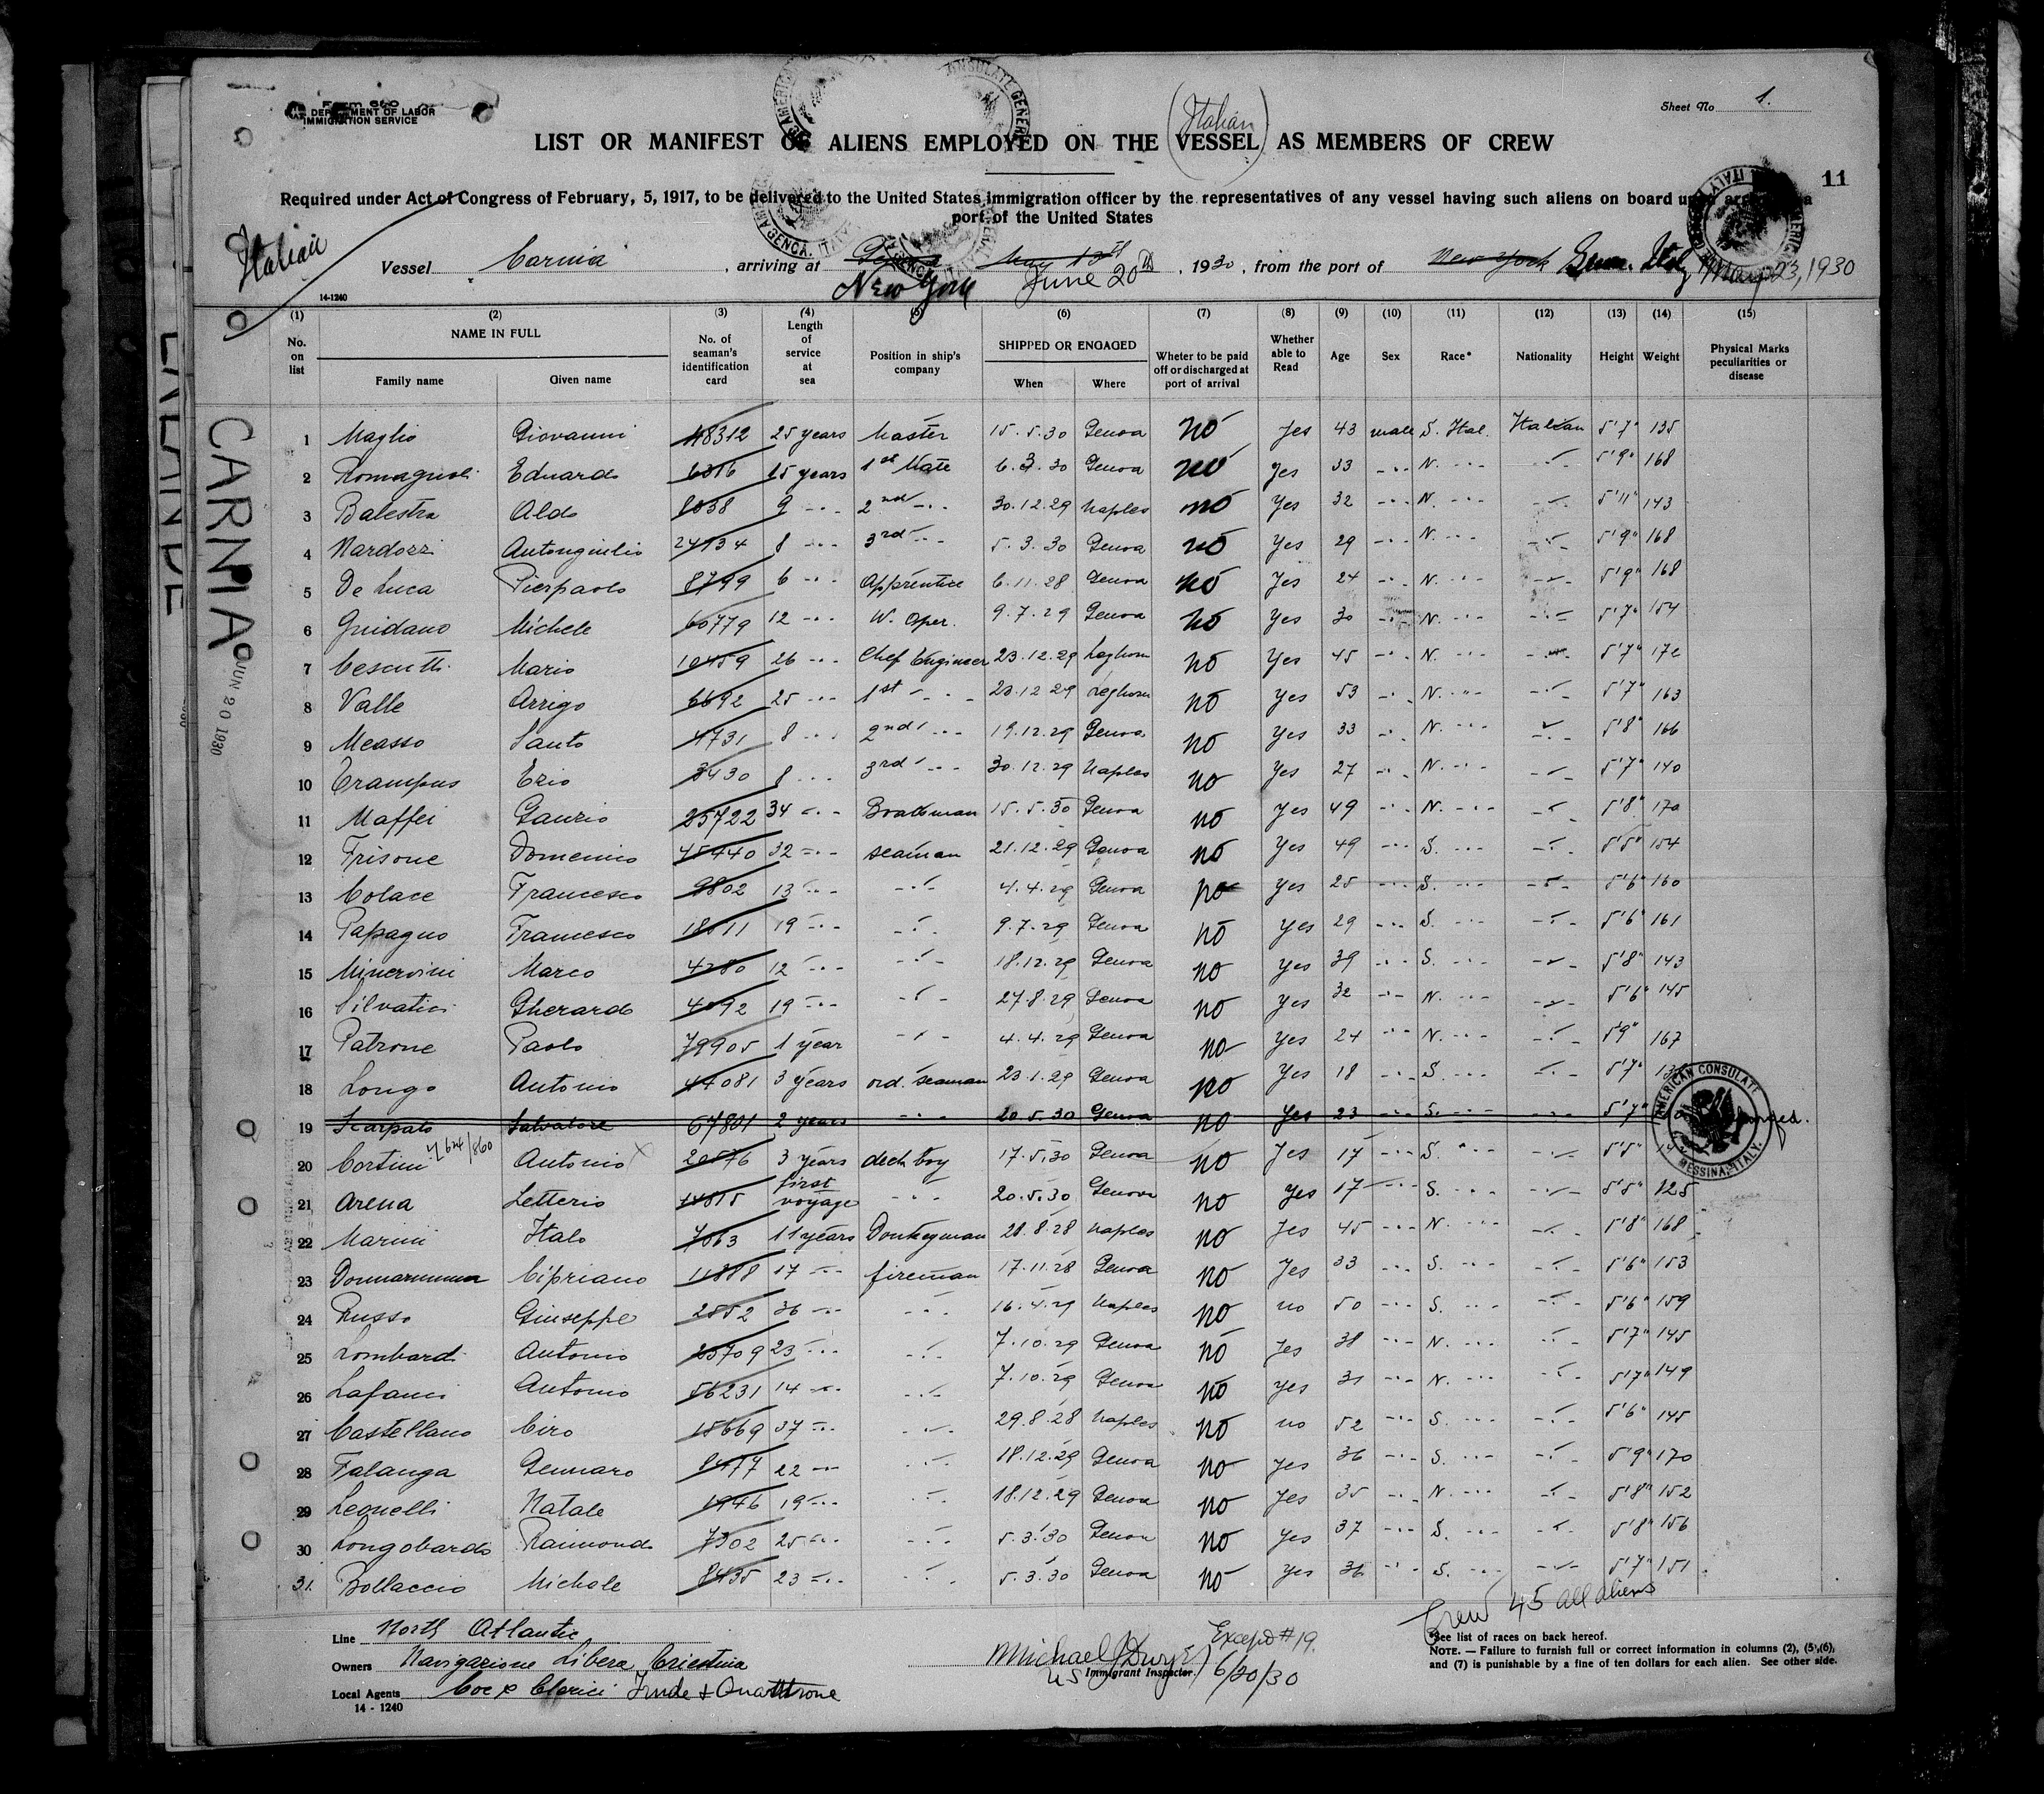 Form 660
DEPARTMENT OF LABOR
IMMIGRATION SERVICE
Sheet No 1.
(Italian)
LIST OR MANIFEST OF ALIENS EMPLOYED ON THE VESSEL AS MEMBERS OF CREW
11
Required under Act of Congress of February, 5, 1917, to be delivered to the United States immigration officer by the representatives of any vessel having such aliens on board upon arrival at a
port of the United States
Italian
Vessel Carnia, arriving at Genoa May 13th, 1930, from the port of New York Genoa, Italy May 23, 1930
New York June 20th
14-1240
CARNIA
JUN 20 1930
(1) (2) (3) (4) (5) (6) (7) (8) (9) (10) (11) (12) (13) (14) (15)
No. on list NAME IN FULL Family name Given name No. of seaman's identification card Length of service at sea Position in ship's company SHIPPED OR ENGAGED When Where Wheter to be paid off or discharged at port of arrival Whether able to Read Age Sex Race* Nationality Height Weight Physical Marks peculiarities or disease
1 Maglio Giovanni 48312 25 years Master 15.5.30 Genoa no Yes 43 male S. Ital. Italian 5'7" 135
2 Romagnoli Eduardo 6316 15 years 1st Mate 6.3.30 Genoa no Yes 33 N. 5'9" 168
3 Balestra Aldo 8038 9 2nd 30.12.29 Naples no Yes 32 N. 5'11" 143
4 Nardozzi Antongiulio 24934 8 3rd 5.3.30 Genoa no Yes 29 N. 5'9" 168
5 De Luca Pierpaolo 8799 6 Apprentice 6.11.28 Genoa no Yes 24 N. 5'9" 168
6 Guidano Michele 60779 12 W. Oper. 9.7.29 Genoa no Yes 30 N. 5'7" 154
7 Cescutti Mario 10459 26 Chef Engineer 23.12.29 Leghorn no Yes 45 N. 5'7" 172
8 Valle Arrigo 6692 25 1st 23.12.29 Leghorn no Yes 53 N. 5'7" 163
9 Measso Santo 4731 8 2nd 19.12.29 Genoa no Yes 33 N. 5'8" 166
10 Trampus Ezio 3430 8 3rd 30.12.29 Naples no Yes 27 N. 5'7" 140
11 Maffei Gaurio 25722 34 Boatsman 15.5.30 Genoa no Yes 49 N. 5'8" 170
12 Frisone Domenico 45440 32 seaman 21.12.29 Genoa no Yes 49 S. 5'5" 154
13 Colace Francesco 9802 13 4.4.29 Genoa no Yes 25 S. 5'6" 160
14 Papagno Francesco 18011 19 9.7.29 Genoa no Yes 29 S. 5'6" 161
15 Minervini Marco 4280 12 18.12.29 Genoa no Yes 39 S. 5'8" 143
16 Silvatici Gherardo 4092 19 27.8.29 Genoa no Yes 32 N. 5'6" 145
17 Patrone Paolo 79905 1 year 4.4.29 Genoa no Yes 24 N. 5'9" 167
18 Longo Antonio 44081 3 years ord. seaman 23.1.29 Genoa no Yes 18 S. 5'7"
19 Scarpato Salvatore 67801 2 years 20.5.30 Genoa no Yes 23 S. 5'7"
20 Cortini Antonio 20576 3 years deck boy 17.5.30 Genoa no Yes 17 S. 5'5"
21 Arena Letterio 14815 first voyage 20.5.30 Genova no Yes 17 S. 5'5" 125
22 Marini Italo 7063 11 years Donkeyman 28.8.28 Naples no Yes 45 N. 5'8" 168
23 Donnarumma Cipriano 11888 17 fireman 17.11.28 Genoa no Yes 33 S. 5'6" 153
24 Russo Giuseppe 2852 36 16.4.29 Naples no no 50 S. 5'6" 159
25 Lombardi Antonio 25709 23 7.10.29 Genoa no Yes 38 N. 5'7" 145
26 Lafanci Antonio 56231 14 7.10.29 Genoa no Yes 31 N. 5'7" 149
27 Castellano Ciro 15669 37 29.8.28 Naples no no 52 S. 5'6" 145
28 Falanga Gennaro 8477 22 18.12.29 Genoa no Yes 36 S. 5'9" 170
29 Leonelli Natale 1946 19 18.12.29 Genoa no Yes 35 N. 5'8" 152
30 Longobardo Raimondo 7302 25 5.3.30 Genoa no Yes 37 S. 5'8" 156
31. Bollaccio Michele 8435 23 5.3.30 Genoa no Yes 36 S. 5'7" 151
AMERICAN CONSULATE
MESSINA, ITALY.
Crew 45 all aliens
Line North Atlantic
Owners Navigazione Libera Triestina
Local Agents Coe & Clerici Trude & Quattrone
14 - 1240
Except #19.
Michael J Dwyer
US Immigrant Inspector. 6/20/30
*See list of races on back hereof.
NOTE. — Failure to furnish full or correct information in columns (2), (5), (6),
and (7) is punishable by a fine of ten dollars for each alien. See other side.